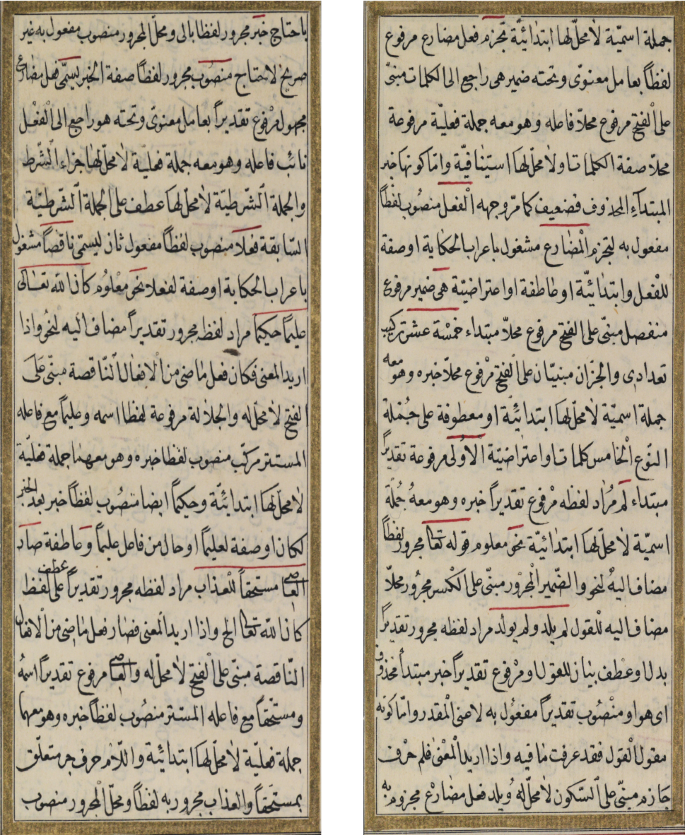 جملة اسميّة لا محلّ لها ابتدائيّة تجزم فعل مضارع مرفوع
لفظاً بعامل معنوىّ وتحته ضمير هى راجع الى الكلمات مبنىّ
على الفتح مرفوع محلاّ فاعله وهو معه جملة فعليّة مرفوعة
محلاّ صفة الكلمات او لا محلّ لها استينافيّة وامّا كونها خبر
المبتداء المحذوف فضعيف كما مرّ وجهه الفعل منصوب لفظاً
مفعول به لتجزم المضارع مشغول باعراب الحكاية او صفة
للفعل وابتدائيّة او عاطفة او اعتراضيّة هى ضمير مرفوع
منفصل مبنىّ على الفتح مرفوع محلاّ مبتداء خمسة عشر تركيب
تعدادى والجزان مبنيّان على الفتح مرفوع محلاّ خبره وهو معه
جملة اسميّة لا محلّ لها ابتدائيّة او معطوفة على جملة
النّوع الخامس كلمات او اعتراضيّة الاولى مرفوعة تقديراً
مبتداء لم مراد لفظه مرفوع تقديراً خبره وهو معه جملة
اسميّة لا محلّ لها ابتدائيّة نحو معلوم قوله تعا مجرور لفظاً
مضاف اليه لنحو والضّمير المجرور مبنىّ على الكسر مجرور محلاّ
مضاف اليه للقول لم يلد ولم يولد مراد لفظه مجرور تقديراً
بدل او عطف بيان للقول او مرفوع تقديراً خبر مبتدأ محذوف
اى هو او منصوب تقديراً مفعول به لاعنى المقدر وامّا كونه
مقول القول فقد عرفت ما فيه واذا اريد المعنى فلم حرف
جازم مبنىّ على السّكون لا محلّ له ويلد فعل مضارع مجزوم به
باحتاج خبر مجرور لفظاً بالى ومحلّ المجرور منصوب مفعول به غير
صريح لاحتاج منصوب مجرور لفظاً صفة الخبر يسمّى فعل مضارع
مجهول مرفوع تقديراً بعامل معنوىّ وتحته هو راجع الى الفعل
نائب فاعله وهو معه جملة فعليّة لا محلّ لها جزاء الشّرط
والجملة الشّرطيّة لا محلّ لها عطف على الجملة الشّرطيّة
السّابقة فعلا منصوب لفظاً مفعول ثان ليسمّى ناقصاً مشغول
باعراب الحكاية او صفة لفعلا نحو معلوم كان الله تعالى
عليماً حكيماً مراد لفظه مجرور تقديراً مضاف اليه لنحو واذا
اريد المعنى فكان فعل ماضى من الافعال النّاقصة مبنىّ على
الفتح لا محلّ له والجلالة مرفوعة لفظاً اسمه وعليماً مع فاعله
المستتر مركّب منصوب لفظاً خبره وهو معهما جملة فعليّة
لا محلّ لها ابتدائيّة وحكيماً ايضا منصوب لفظاً خبر بعد الخبر
لكان او صفة لعليماً او حال من فاعل عليماً وعاطفة صار
العاصى مستحقاً للعذاب مراد لفظه مجرور تقديراً عطف على لفظ
كان الله تعا الخ واذا اريد المعنى فصار فعل ماضى من الافعال
النّاقصة مبنىّ على الفتح لا محلّ له والعاصى مرفوع تقديراً اسمه
ومستحقّاً مع فاعله المستتر منصوب لفظاً خبره وهو معهما
جملة فعليّة لا محلّ لها ابتدائيّة واللّام حرف جر متعلّق
بمستحقاً والعذاب مجرور به لفظاً ومحلّ المجرور منصوب